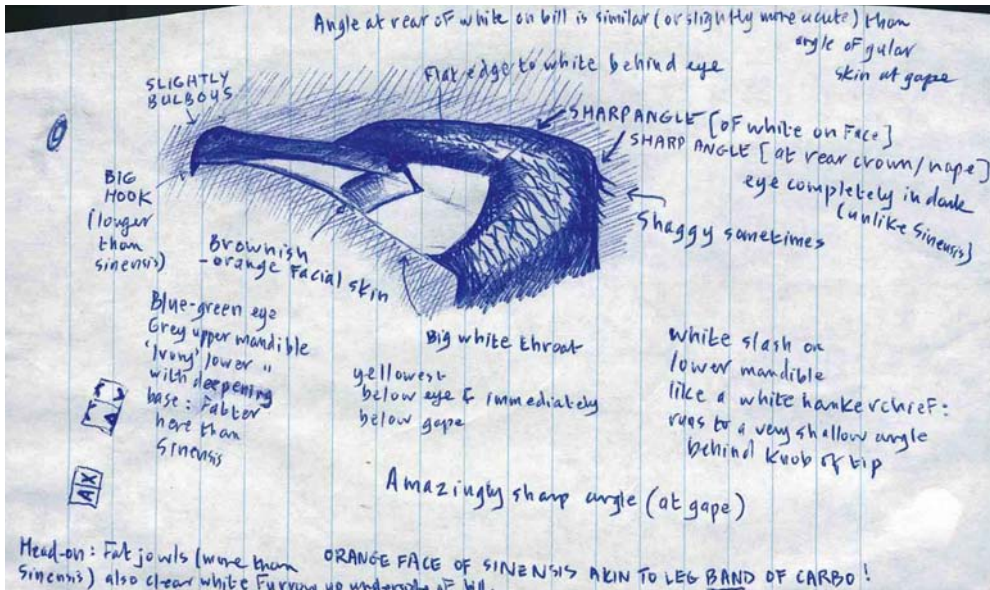 Angle at rear of white on bill is similar (or slightly more acute) than
angle of gular
skin at gape
Flat edge to white behind eye
SLIGHTLY
BULBOUS
SHARP ANGLE [of white on Face]
SHARP ANGLE [at rear crown/nape]
eye completely in dark
(unlike Sinensis)
Shaggy sometimes
BIG
HOOK
(longer
than
sinensis)
Brownish
-orange Facial skin
Big white throat
Blue-green eye
Grey upper mandible
'Ivory' lower "
with deepening
base: Fatter
here than
Sinensis
yellowest
below eye & immediately
below gape
white slash on
lower mandible
like a white hankerchief:
runs to a very shallow angle
behind knob of tip
AX
Amazingly sharp angle (at gape)
Head-on: Fat jowls (more than
Sinensis) also clear white Furrow up underside of bill.
ORANGE FACE OF SINENSIS AKIN TO LEG BAND OF CARBO!